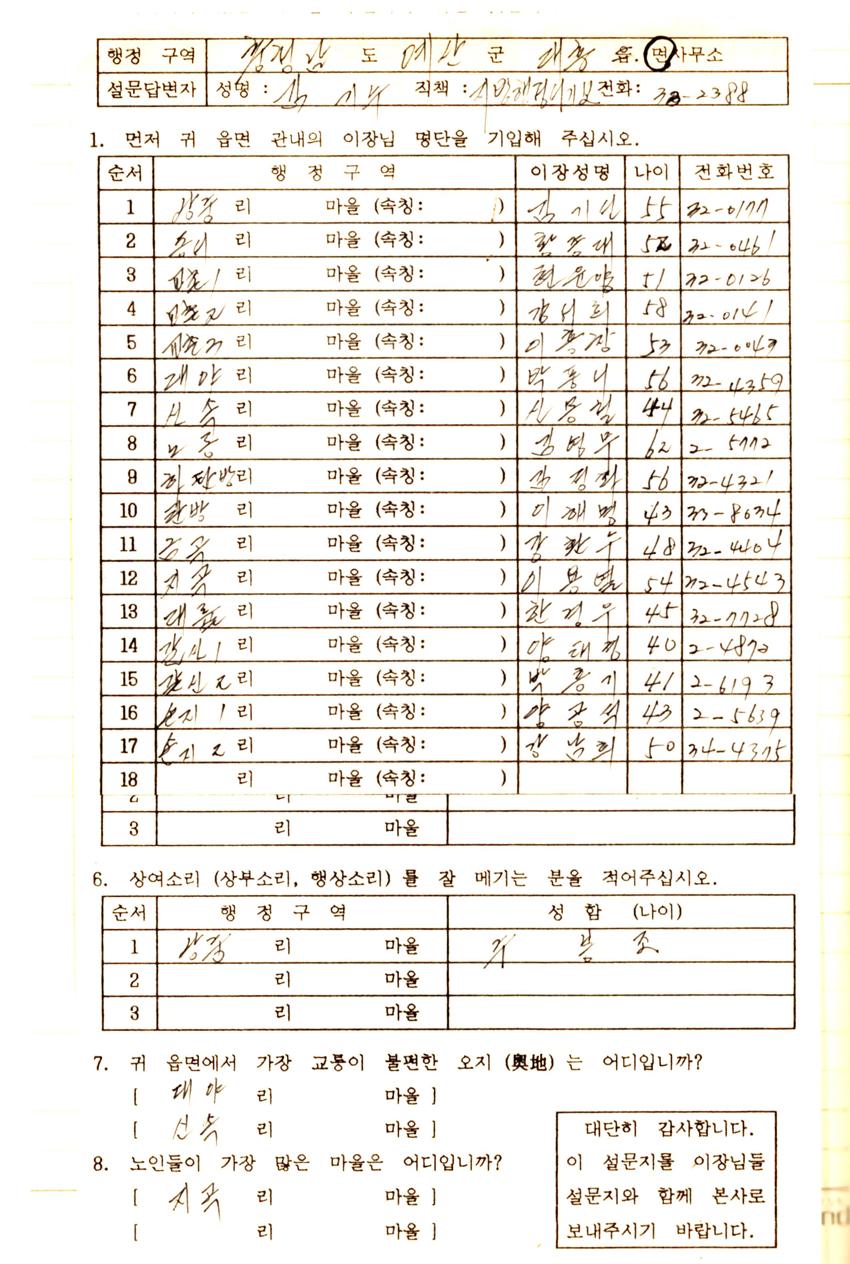 행정 구역 충청남 도 예산 군 대흥 읍. 면사무소
설문답변자 성명 : 직책 : 전화: 32-2388
1. 먼저 귀 읍면 관내의 이장님 명단을 기입해 주십시오.
순서 행 정 구 역 이장성명 나이 전화번호
1 상중 리 마을 (속칭: ) 김 기 55 32-0177
2 리 마을 (속칭: ) 52 32-0461
3 교촌1 리 마을 (속칭: ) 51 32-0126
4 교촌2 리 마을 (속칭: ) 58 32-0141
5 교촌3 리 마을 (속칭: ) 이 53 32-0043
6 대야 리 마을 (속칭: ) 박 56 32-4359
7 신속 리 마을 (속칭: ) 44 32-5465
8 리 마을 (속칭: ) 김영무 62 2-5772
9 하탄방리 마을 (속칭: ) 56 32-4321
10 탄방 리 마을 (속칭: ) 이해명 43 33-8634
11 금곡 리 마을 (속칭: ) 48 32-4404
12 지곡 리 마을 (속칭: ) 이용별 54 32-4543
13 대률 리 마을 (속칭: ) 한경우 45 32-7728
14 갈신1 리 마을 (속칭: ) 양태경 40 2-4872
15 갈신2 리 마을 (속칭: ) 박흥기 41 2-6193
16 손지1 리 마을 (속칭: ) 양광석 43 2-5639
17 손지2 리 마을 (속칭: ) 강남희 50 34-4375
18 리 마을 (속칭: )
2 리 마을
3 리 마을
6. 상여소리 (상부소리, 행상소리) 를 잘 메기는 분을 적어주십시오.
순서 행 정 구 역 성 함 (나이)
1 상중 리 마을
2 리 마을
3 리 마을
7. 귀 읍면에서 가장 교통이 불편한 오지 (奧地) 는 어디입니까?
[ 대야 리 마을 ]
[ 신속 리 마을 ]
8. 노인들이 가장 많은 마을은 어디입니까?
[ 지곡 리 마을 ]
[ 리 마을 ]
대단히 감사합니다.
이 설문지를 이장님들
설문지와 함께 본사로
보내주시기 바랍니다.